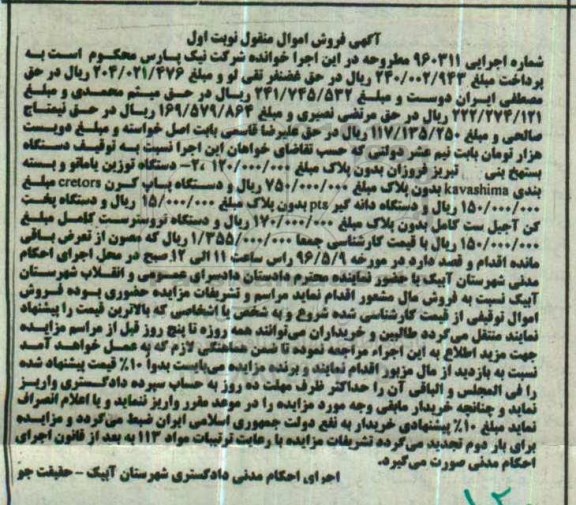 آگهی فروش اموال منقول نوبت اول
شماره اجرایی ۹۶۰۳۱۱ مطروحه در این اجرا خوانده شرکت نیک پارس محکوم است به
پرداخت مبلغ ۲۴۰/۰۰۲/۹۴۳ ریال در حق غضنفر تقی لو و مبلغ ۲۰۴/۰۲۱/۴۷۶ ریال در حق
مصطفی ایران دوست و مبلغ ۲۴۱/۷۴۵/۵۳۲ ریال در حق میثم محمدی و مبلغ
۲۲۲/۲۷۴/۱۲۱ ریال در حق مرتضی نصیری و مبلغ ۱۶۹/۵۷۹/۸۶۴ ریال در حق نیمتاج
صالحی و مبلغ ۱۱۷/۱۳۵/۲۵۰ ریال در حق علیرضا قاسمی بابت اصل خواسته و مبلغ دویست
هزار تومان بابت نیم عشر دولتی که حسب تقاضای خواهان این اجرا نسبت به توقیف دستگاه
تبریز فروزان بدون پلاک مبلغ ۱۲۰/۰۰۰/۰۰۰ ،۲- دستگاه توزین یاماتو و بسته
بندی kavashima بدون پلاک مبلغ ۷۵۰/۰۰۰/۰۰۰ ریال و دستگاه پاپ کرن cretors مبلغ
۱۵۰/۰۰۰/۰۰۰ ریال و دستگاه دانه گیر pts بدون پلاک مبلغ ۱۵/۰۰۰/۰۰۰ ریال و دستگاه پخت
کن آجیل ست کامل بدون پلاک مبلغ ۱۷۰/۰۰۰/۰۰۰ ریال و دستگاه تروسترست کامل مبلغ
۱۵۰/۰۰۰/۰۰۰ ریال با قیمت کارشناسی جمعا ۱/۳۵۵/۰۰۰/۰۰۰ ریال که مصون از تعرض باقی
مانده اقدام و قصد دارد در مورخه ۹۶/۵/۹ راس ساعت ۱۱ الی ۱۲ صبح در محل اجرای احکام
مدنی شهرستان آبیک با حضور نماینده محترم دادستان دادسرای عمومی و انقلاب شهرستان
آبیک نسبت به فروش مال مشعور اقدام نماید مراسم و تشریفات مزایده حضوری بوده فروش
اموال توقیفی از قیمت کارشناسی شده شروع و به شخص یا اشخاصی که بالاترین قیمت را پیشنهاد
نمایند منتقل می‌گردد طالبین و خریداران می‌توانند همه روزه تا پنج روز قبل از مراسم مزایده
جهت مزید اطلاع به این اجراء مراجعه نموده تا ضمن هماهنگی لازم که به عمل خواهد آمد
نسبت به بازدید از مال مزبور اقدام نمایند و برنده مزایده می‌بایست بدوا ۱۰٪ قیمت پیشنهاد شده
را فی المجلس و الباقی آن را حداکثر ظرف مهلت ده روز به حساب سپرده دادگستری واریز
نماید و چنانچه خریدار مابقی وجه مورد مزایده را در موعد مقرر واریز ننماید و یا اعلام انصراف
نماید مبلغ ۱۰٪ پیشنهادی خریدار به نفع دولت جمهوری اسلامی ایران ضبط می‌گردد و مزایده
برای بار دوم تجدید می‌گردد تشریفات مزایده با رعایت ترتیبات مواد ۱۱۳ به بعد از قانون اجرای
احکام مدنی صورت می‌گیرد.
اجرای احکام مدنی دادگستری شهرستان آبیک - حقیقت جو